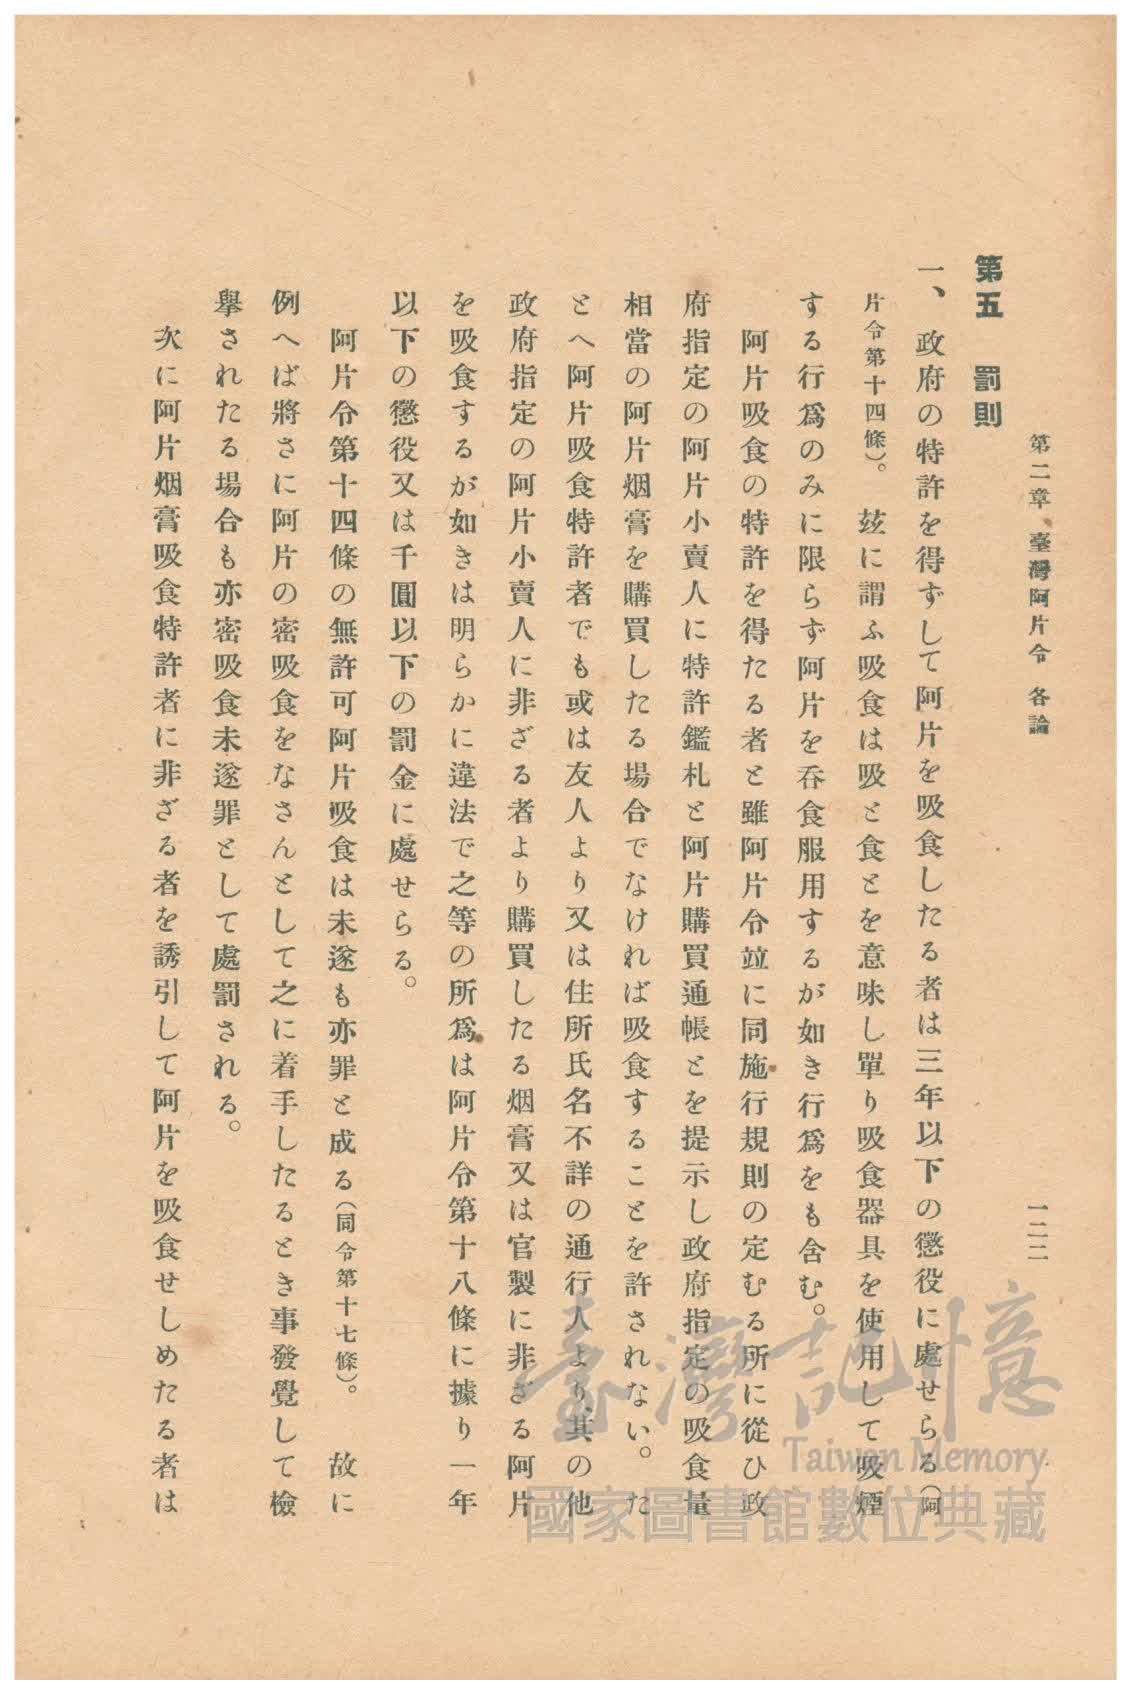 第二章 臺灣阿片令 各論
一二二
第五 罰則
一、政府の特許を得ずして阿片を吸食したる者は三年以下の懲役に處せらる(阿
片令第十四條)。 玆に謂ふ吸食は吸と食とを意味し單り吸食器具を使用して吸煙
する行爲のみに限らず阿片を呑食服用するが如き行爲をも含む。
阿片吸食の特許を得たる者と雖阿片令竝に同施行規則の定むる所に從ひ政
府指定の阿片小賣人に特許鑑札と阿片購買通帳とを提示し政府指定の吸食量
相當の阿片烟膏を購買したる場合でなければ吸食することを許されない。た
とへ阿片吸食特許者でも或は友人より又は住所氏名不詳の通行人より、其の他
政府指定の阿片小賣人に非ざる者より購買したる烟膏又は官製に非ざる阿片
を吸食するが如きは明らかに違法で之等の所爲は阿片令第十八條に據り一年
以下の懲役又は千圓以下の罰金に處せらる。
阿片令第十四條の無許可阿片吸食は未遂も亦罪と成る(同令第十七條)。 故に
例へば將さに阿片の密吸食をなさんとして之に着手したるとき事發覺して檢
擧されたる場合も亦密吸食未遂罪として處罰される。
次に阿片烟膏吸食特許者に非ざる者を誘引して阿片を吸食せしめたる者は
臺灣記憶
Taiwan Memory
國家圖書館數位典藏